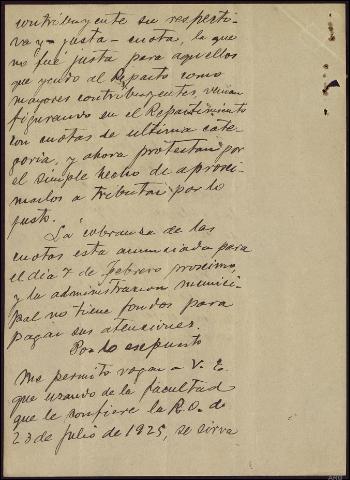 contribuyente su respecti-
va y justa cuota, la que
no fué justa para aquellos
que yendo al Reparto como
mayores contribuyentes, venian
figurando en el Repartimiento
con cuotas de ultima cate-
goria, y ahora protestan por
el simple hecho de aproxi-
marlos a tributar por lo
justo.
La cobranza de las
cuotas esta anunciada para
el dia 7 de febrero proximo,
y la administracion munici-
pal no tiene fondos para
pagar sus atenciones.
Por lo expuesto
Me permito rogar a V. E.
que usando de la facultad
que le confiere la R.O. de
23 de julio de 1925, se sirva